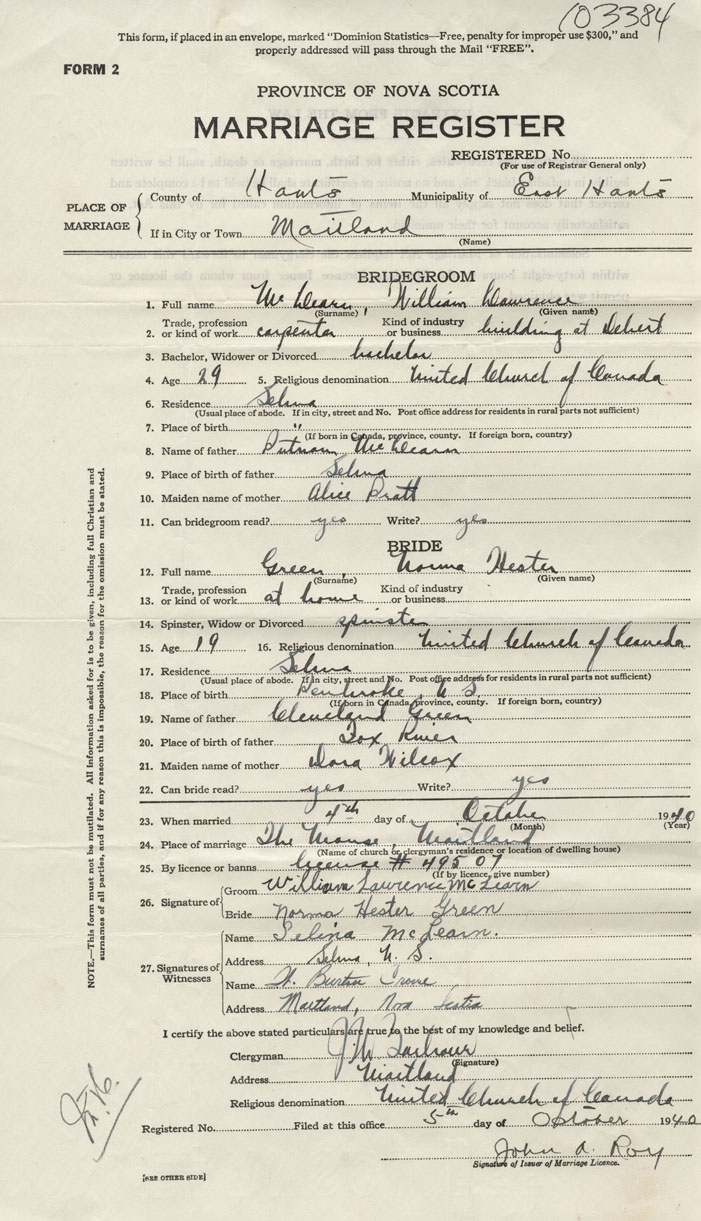 103384
This form, if placed in an envelope, marked "Dominion Statistics—Free, penalty for improper use $300," and
properly addressed will pass through the Mail "FREE".
FORM 2
PROVINCE OF NOVA SCOTIA
MARRIAGE REGISTER
REGISTERED No.
(For use of Registrar General only)
PLACE OF MARRIAGE
County of Hants Municipality of East Hants
If in City or Town Maitland
(Name)
BRIDEGROOM
1. Full name McLearn, William Lawrence
(Surname) (Given name)
2. Trade, profession or kind of work carpenter Kind of industry or business building at Debert
3. Bachelor, Widower or Divorced bachelor
4. Age 29 5. Religious denomination United Church of Canada
6. Residence Selma
(Usual place of abode. If in city, street and No. Post office address for residents in rural parts not sufficient)
7. Place of birth "
(If born in Canada, province, county. If foreign born, country)
8. Name of father Putnam McLearn
9. Place of birth of father Selma
10. Maiden name of mother Alice Pratt
11. Can bridegroom read? yes Write? yes
BRIDE
12. Full name Green, Norma Hester
(Surname) (Given name)
13. Trade, profession or kind of work at home Kind of industry or business
14. Spinster, Widow or Divorced spinster
15. Age 19 16. Religious denomination United Church of Canada
17. Residence Selma
(Usual place of abode. If in city, street and No. Post office address for residents in rural parts not sufficient)
18. Place of birth Pembroke, N.S.
(If born in Canada, province, county. If foreign born, country)
19. Name of father Cleveland Green
20. Place of birth of father Fox River
21. Maiden name of mother Dora Wilcox
22. Can bride read? yes Write? yes
23. When married 4th day of October 1940
(Month) (Year)
24. Place of marriage The Manse, Maitland
(Name of church or clergyman's residence or location of dwelling house)
25. By licence or banns license # 49507
(If by licence, give number)
26. Signature of
Groom William Lawrence McLearn
Bride Norma Hester Green
27. Signatures of Witnesses
Name Selina McLearn.
Address Selma, N.S.
Name Burton
Address Maitland, Nova Scotia
I certify the above stated particulars are true to the best of my knowledge and belief.
Clergyman J.W.
(Signature)
Address Maitland
Religious denomination United Church of Canada
Registered No. Filed at this office 5th day of October 1940
John A. Roy
Signature of Issuer of Marriage Licence.
[SEE OTHER SIDE]
NOTE.—This form must not be mutilated. All information asked for is to be given, including full Christian and
surnames of all parties, and if for any reason this is impossible, the reason for the omission must be stated.